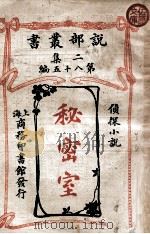 說部叢書
二集
第八十五編
偵探小說
秘密室
上海商務印書館發行